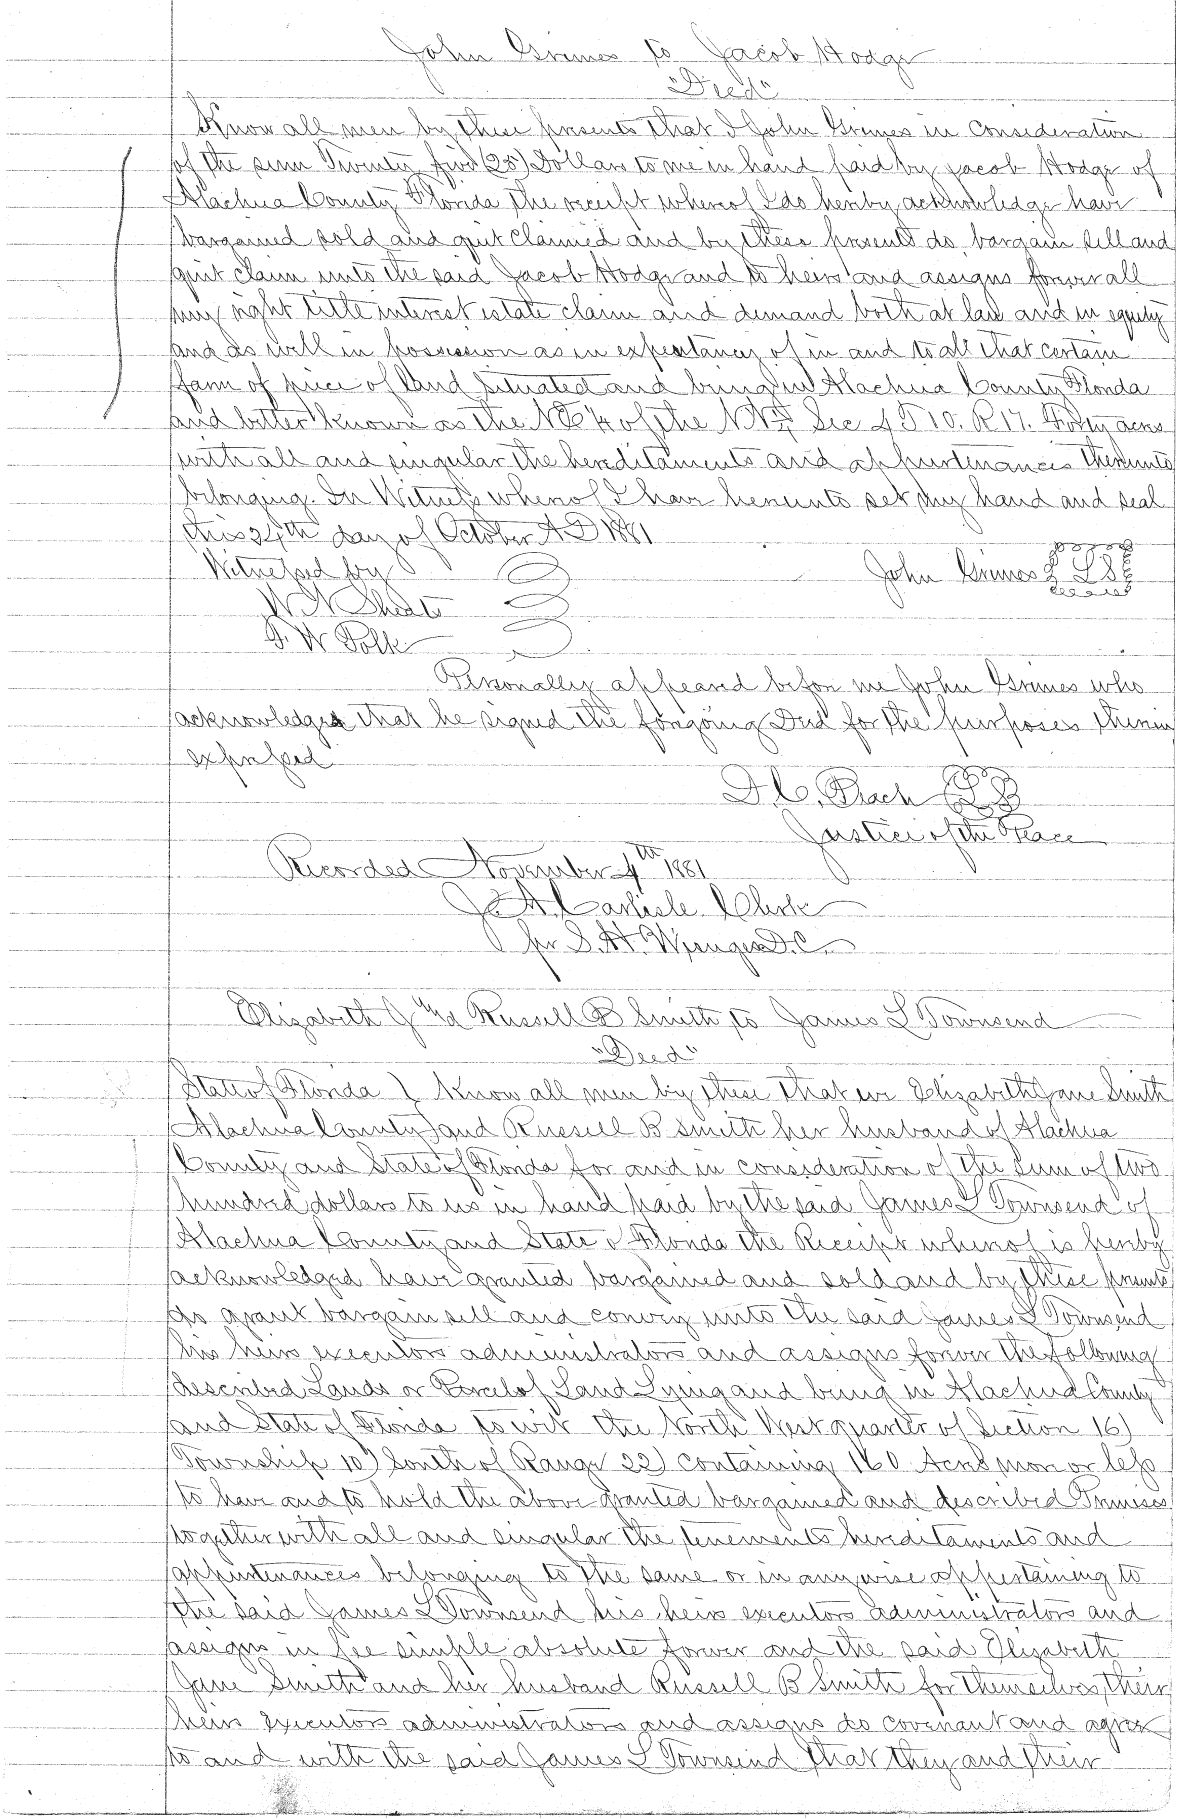 John Grimes to Jacob Hodge
"Deed"
Know all men by these presents that I John Grimes in consideration
of the sum Twenty five (25) Dollars to me in hand paid by Jacob Hodge of
Alachua County Florida the receipt whereof I do hereby acknowledge have
bargained sold and quit claimed and by these presents do bargain sell and
quit claim unto the said Jacob Hodge and to heirs and assigns forever all
my right title interest estate claim and demand both at law and in equity
and as well in possession as in expectancy of in and to all that certain
farm of piece of land situated and being in Alachua County Florida
and better known as the NE 1/4 of the Sec 4 T 10. R 17. Forty acres
with all and singular the hereditaments and appurtenances thereunto
belonging. In Witness whereof I have hereunto set my hand and seal
this 24th day of October A D 1881
Witnessed by
John Grimes L S
W N Sheats
W Polk
Personally appeared before me John Grimes who
acknowledges that he signed the foregoing Deed for the purposes therein
expressed
D. C. Peach L S
Justice of the Peace
Recorded November 4th 1881
J. A. Carlisle Clerk
per S. H. Wienges D. C.
Elizabeth J and Russell B Smith to James L Townsend
"Deed"
State of Florida } Know all men by these that we Elizabeth Jane Smith
Alachua County } and Russell B Smith her husband of Alachua
County and State of Florida for and in consideration of the sum of two
hundred dollars to us in hand paid by the said James L Townsend of
Alachua County and State of Florida the Receipt whereof is hereby
acknowledged have granted bargained and sold and by these presents
do grant bargain sell and convey unto the said James L Townsend
his heirs executors administrators and assigns forever the following
described Lands or Parcel of Land Lying and being in Alachua County
and State of Florida to wit the North West quarter of Section 16)
Township 10) South of Range 22) containing 160 Acres more or less
to have and to hold the above granted bargained and described Premises
together with all and singular the tenements hereditaments and
appurtenances belonging to the same or in anywise appertaining to
the said James L Townsend his heirs executors administrators and
assigns in fee simple absolute forever and the said Elizabeth
Jane Smith and her husband Russell B Smith for themselves, their
heirs executors administrators and assigns do covenant and agree
to and with the said James L Townsend that they and their